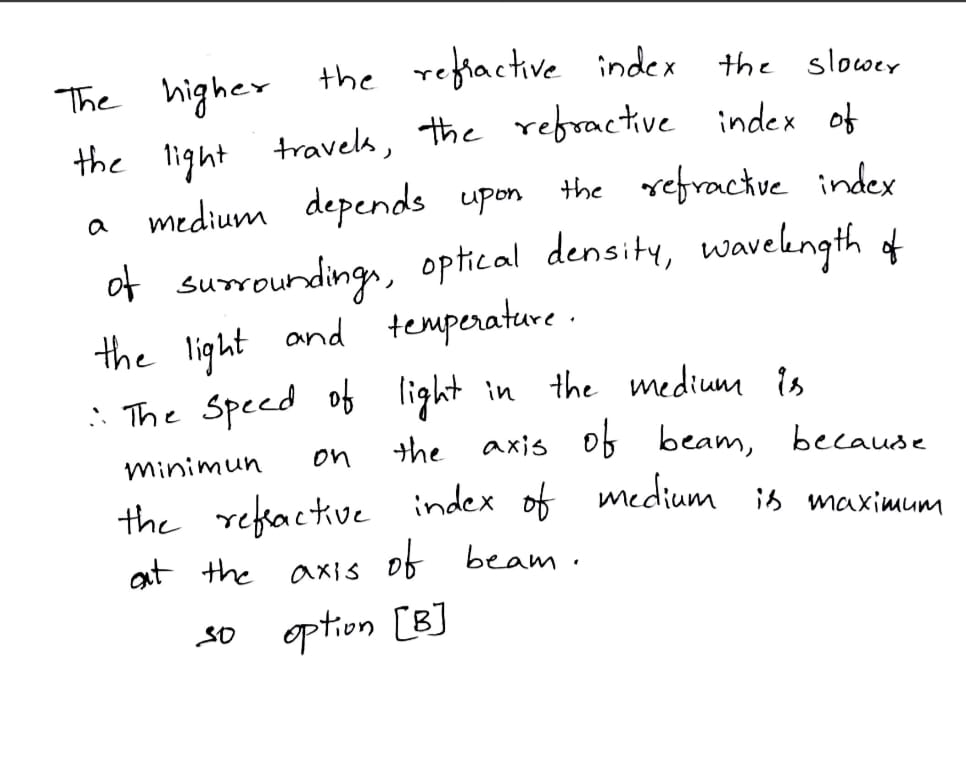 The higher the refractive index the slower
the light travels, the refractive index of
a medium depends upon the refractive index
of surroundings, optical density, wavelength of
the light and temperature.
∴ The speed of light in the medium is
minimun on the axis of beam, because
the refractive index of medium is maximum
at the axis of beam.
so option [B]